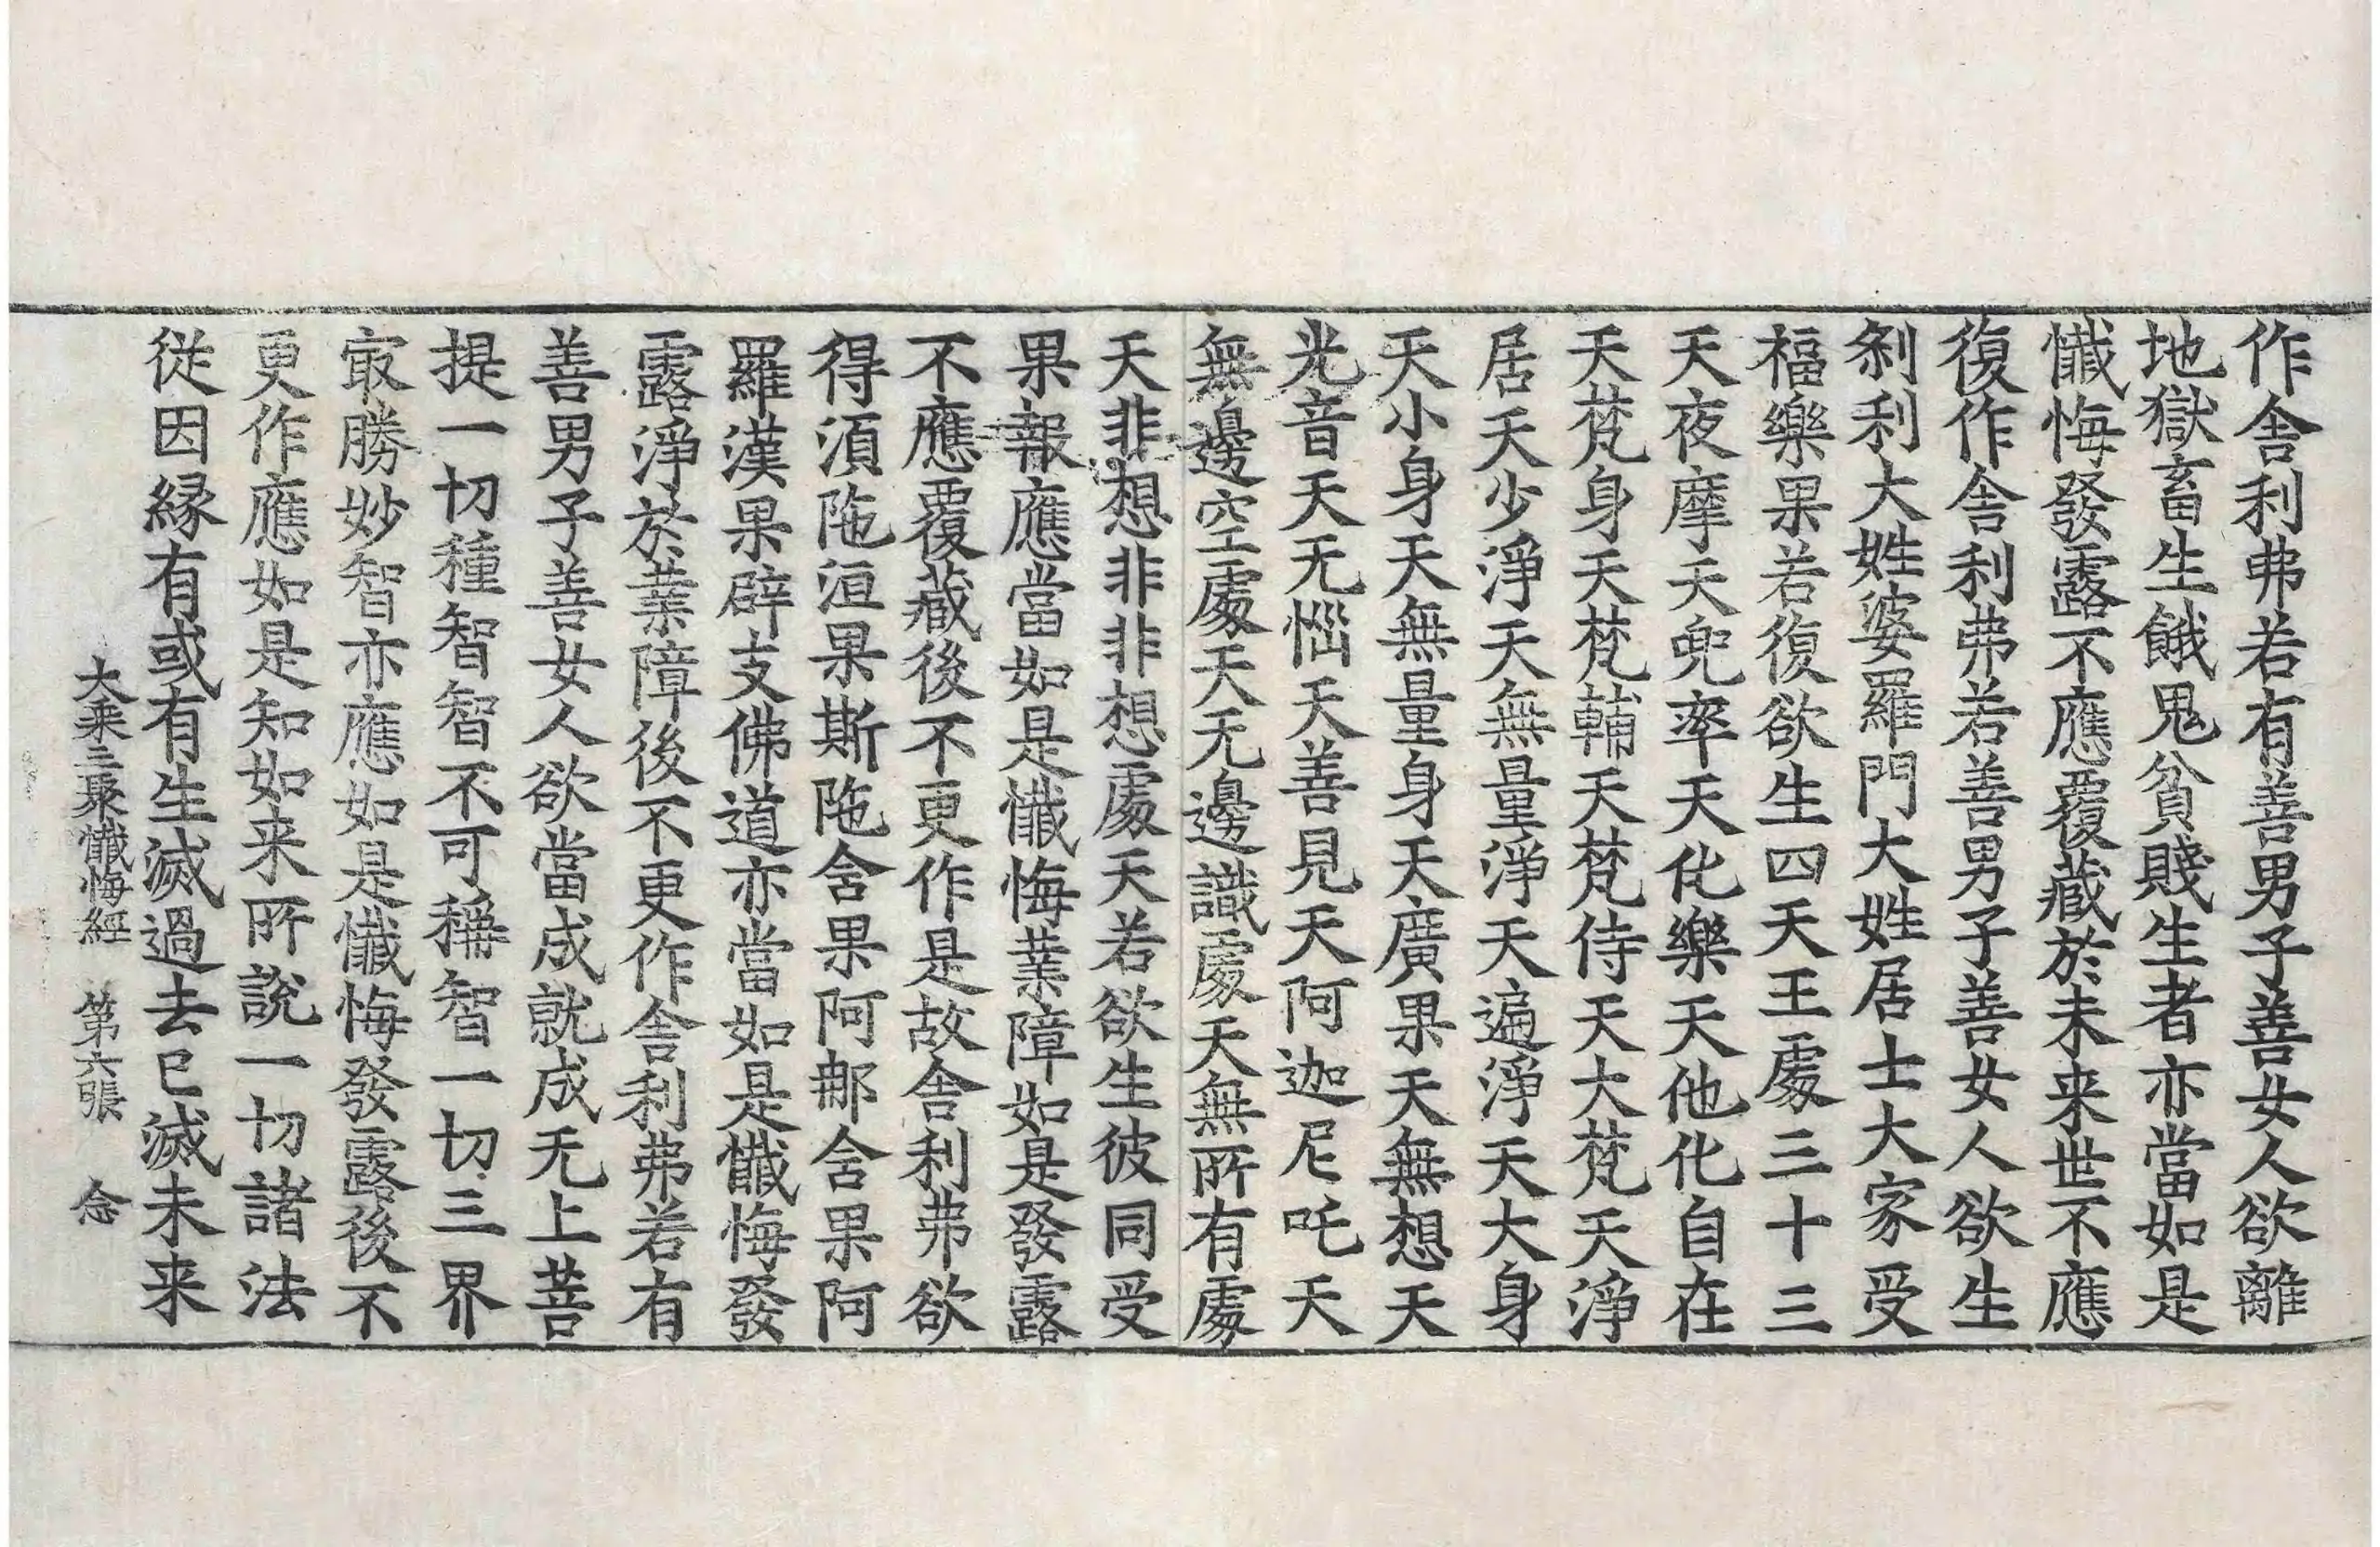 作舍利弗若有善男子善女人欲離
地獄畜生餓鬼貧賤生者亦當如是
懺悔發露不應覆藏於未来世不應
復作舍利弗若善男子善女人欲生
刹利大姓婆羅門大姓居士大家受
福樂果若復欲生四天王處三十三
天夜摩天兜率天化樂天他化自在
天梵身天梵輔天梵侍天大梵天淨
居天少淨天無量淨天遍淨天大身
天小身天無量身天廣果天無想天
光音天无惱天善見天阿迦尼吒天
無邊空處天无邊識處天無所有處
天非想非非想處天若欲生彼同受
果報應當如是懺悔業障如是發露
不應覆藏後不更作是故舍利弗欲
得湏陁洹果斯陁含果阿那含果阿
羅漢果辟支佛道亦當如是懺悔發
露淨於業障後不更作舍利弗若有
善男子善女人欲當成就成无上菩
提一切種智智不可稱智一切三界
㝡勝妙智亦應如是懺悔發露後不
更作應如是知如来所說一切諸法
從因緣有或有生滅過去已滅未来
大乘三聚懺悔經 第六張 念